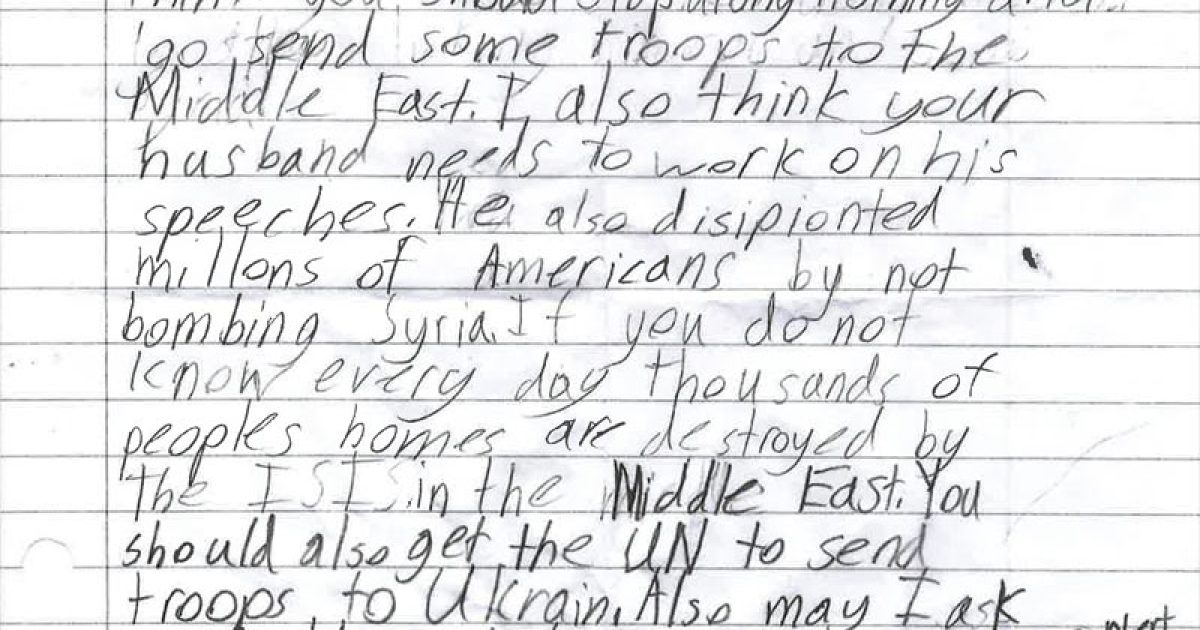 think you should stop
go send some troops to the
Middle East. I also think your
husband needs to work on his
speeches. He also disipionted
millons of Americans by not
bombing Syria. If you do not
know every day thousands of
peoples homes are destroyed by
the ISIS in the Middle East. You
should also get the UN to send
troops to Ukrain. Also may I ask